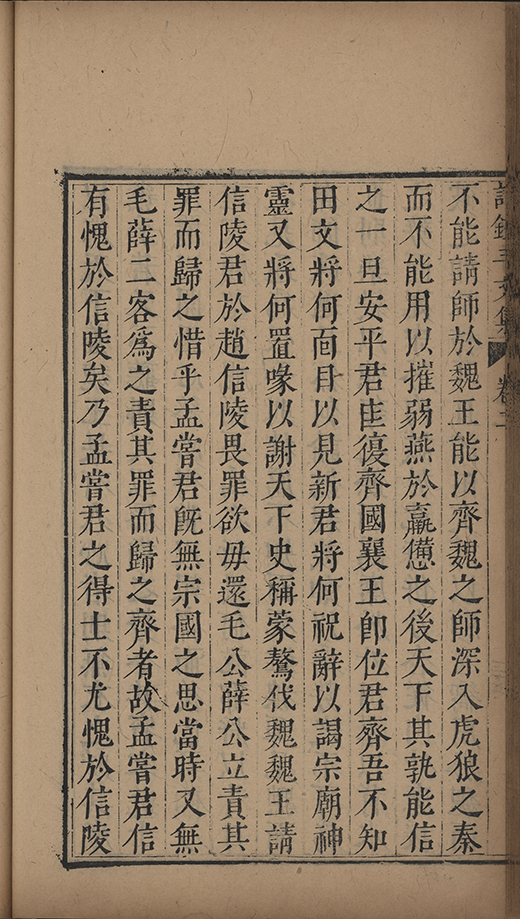 不能請師於魏王能以齊魏之師深入虎狼之秦
而不能用以摧弱燕於羸憊之後天下其孰能信
之一旦安平君匡復齊國襄王卽位君齊吾不知
田文將何面目以見新君將何祝辭以謁宗廟神
靈又將何置喙以謝天下史稱蒙驁伐魏魏王請
信陵君於趙信陵畏罪欲毋還毛公薛公立責其
罪而歸之惜乎孟嘗君旣無宗國之思當時又無
毛薛二客爲之責其罪而歸之齊者故孟嘗君信
有愧於信陵矣乃孟嘗君之得士不尤愧於信陵